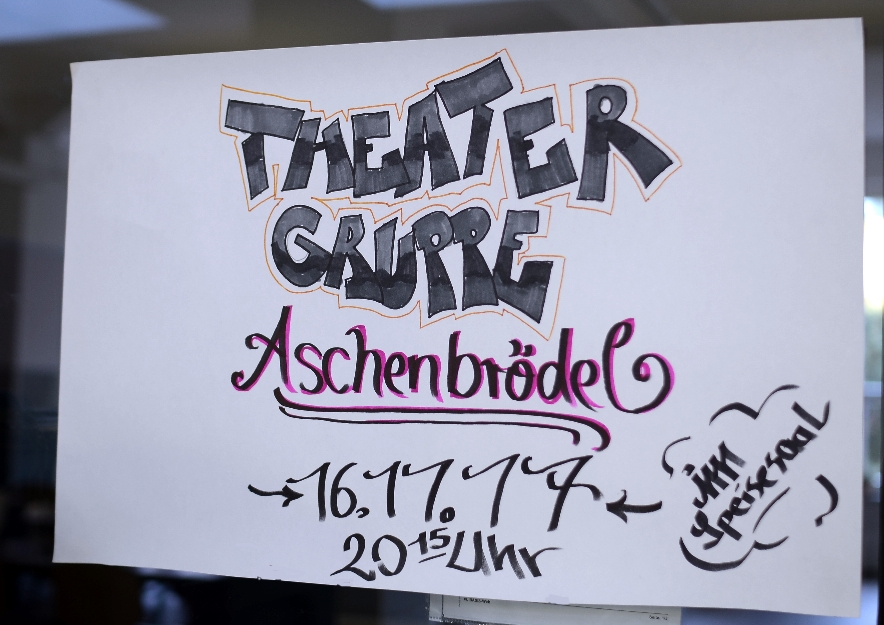 THEATER
GRUPPE
Aschenbrödel
→16.11.17←
20 15 Uhr
im
Speisesaal